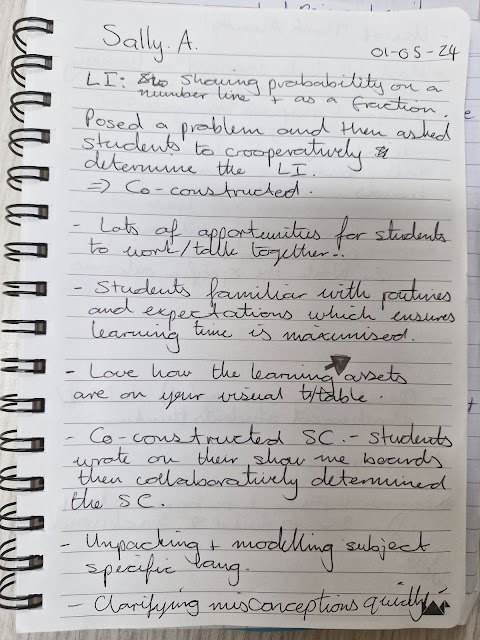 Sally. A.
01-05-24
LI: showing probability on a
number line + as a fraction.
Posed a problem and then asked
students to crooperatively
determine the LI.
⇒ Co-constructed.
- Lots of opportunities for students
to work/talk together..
- Students familiar with routines
and expectations which ensures
learning time is maximised.
- Love how the learning assets
are on your visual t/table.
- Co-constructed SC. - Students
wrote on their show me boards
then collaboratively determined
the SC.
- Unpacking + modelling subject
specific lang.
- Clarifying misconceptions quickly